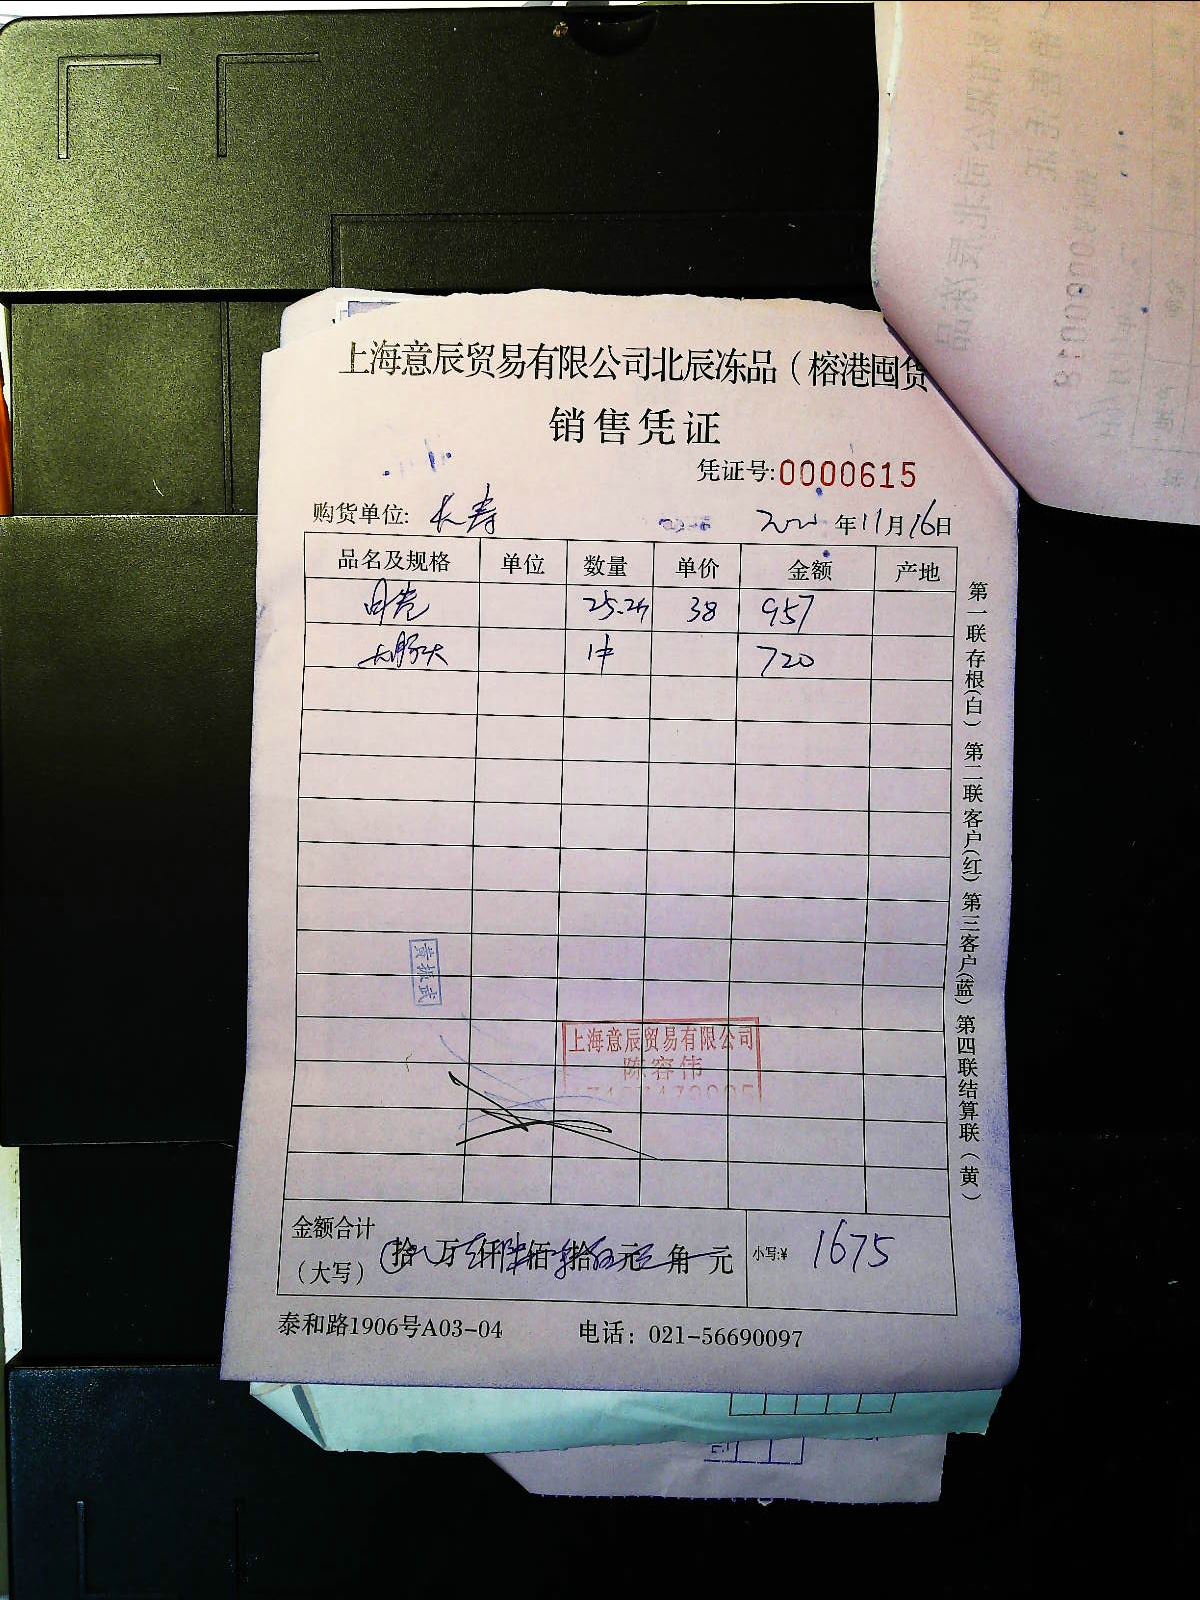 上海意辰贸易有限公司北辰冻品（榕港囤货
销售凭证
凭证号:0000615
购货单位: 长寿 年11月16日
品名及规格 单位 数量 单价 金额 产地
38 957
1件 720
第一联存根(白) 第二联客户(红) 第三客户(蓝) 第四联结算联(黄)
上海意辰贸易有限公司
陈容伟
金额合计
（大写） 拾 万 仟 佰 拾 元 角 元 小写:¥ 1675
泰和路1906号A03-04 电话: 021-56690097